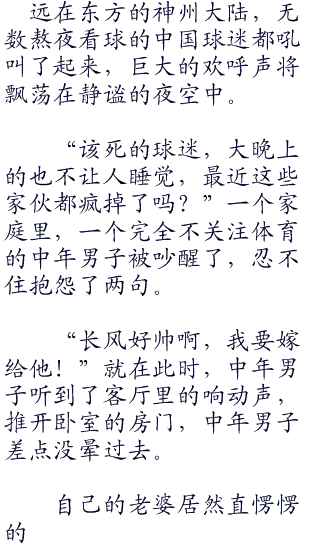 远在东方的神州大陆，无
数熬夜看球的中国球迷都吼
叫了起来，巨大的欢呼声将
飘荡在静谧的夜空中。
“该死的球迷，大晚上
的也不让人睡觉，最近这些
家伙都疯掉了吗？”一个家
庭里，一个完全不关注体育
的中年男子被吵醒了，忍不
住抱怨了两句。
“长风好帅啊，我要嫁
给他！”就在此时，中年男
子听到了客厅里的响动声，
推开卧室的房门，中年男子
差点没晕过去。
自己的老婆居然直愣愣
的